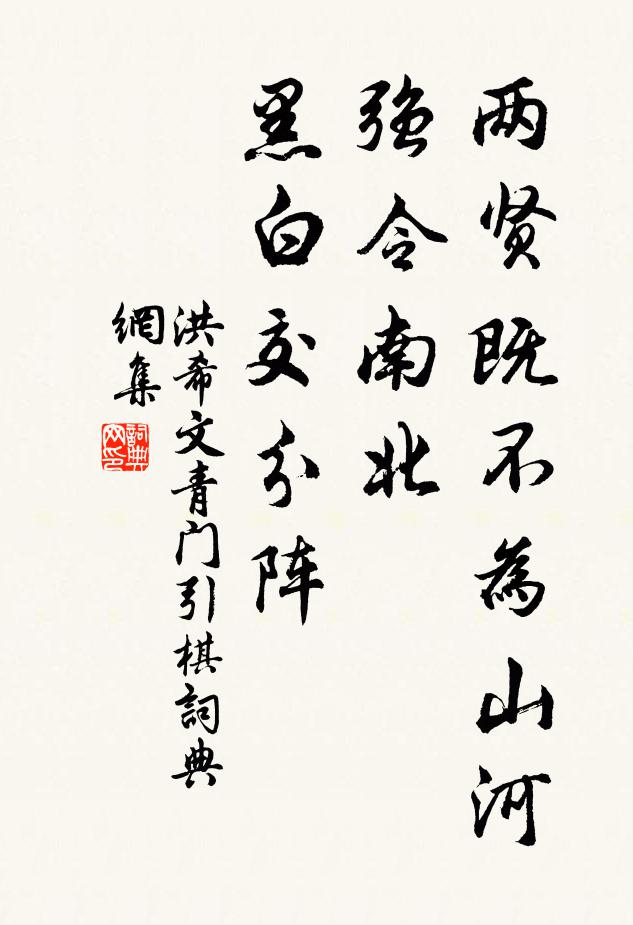 两贤既不為山河
强令南北
黑白交分阵
洪希文青门引棋詞典
網集
詞典
网印